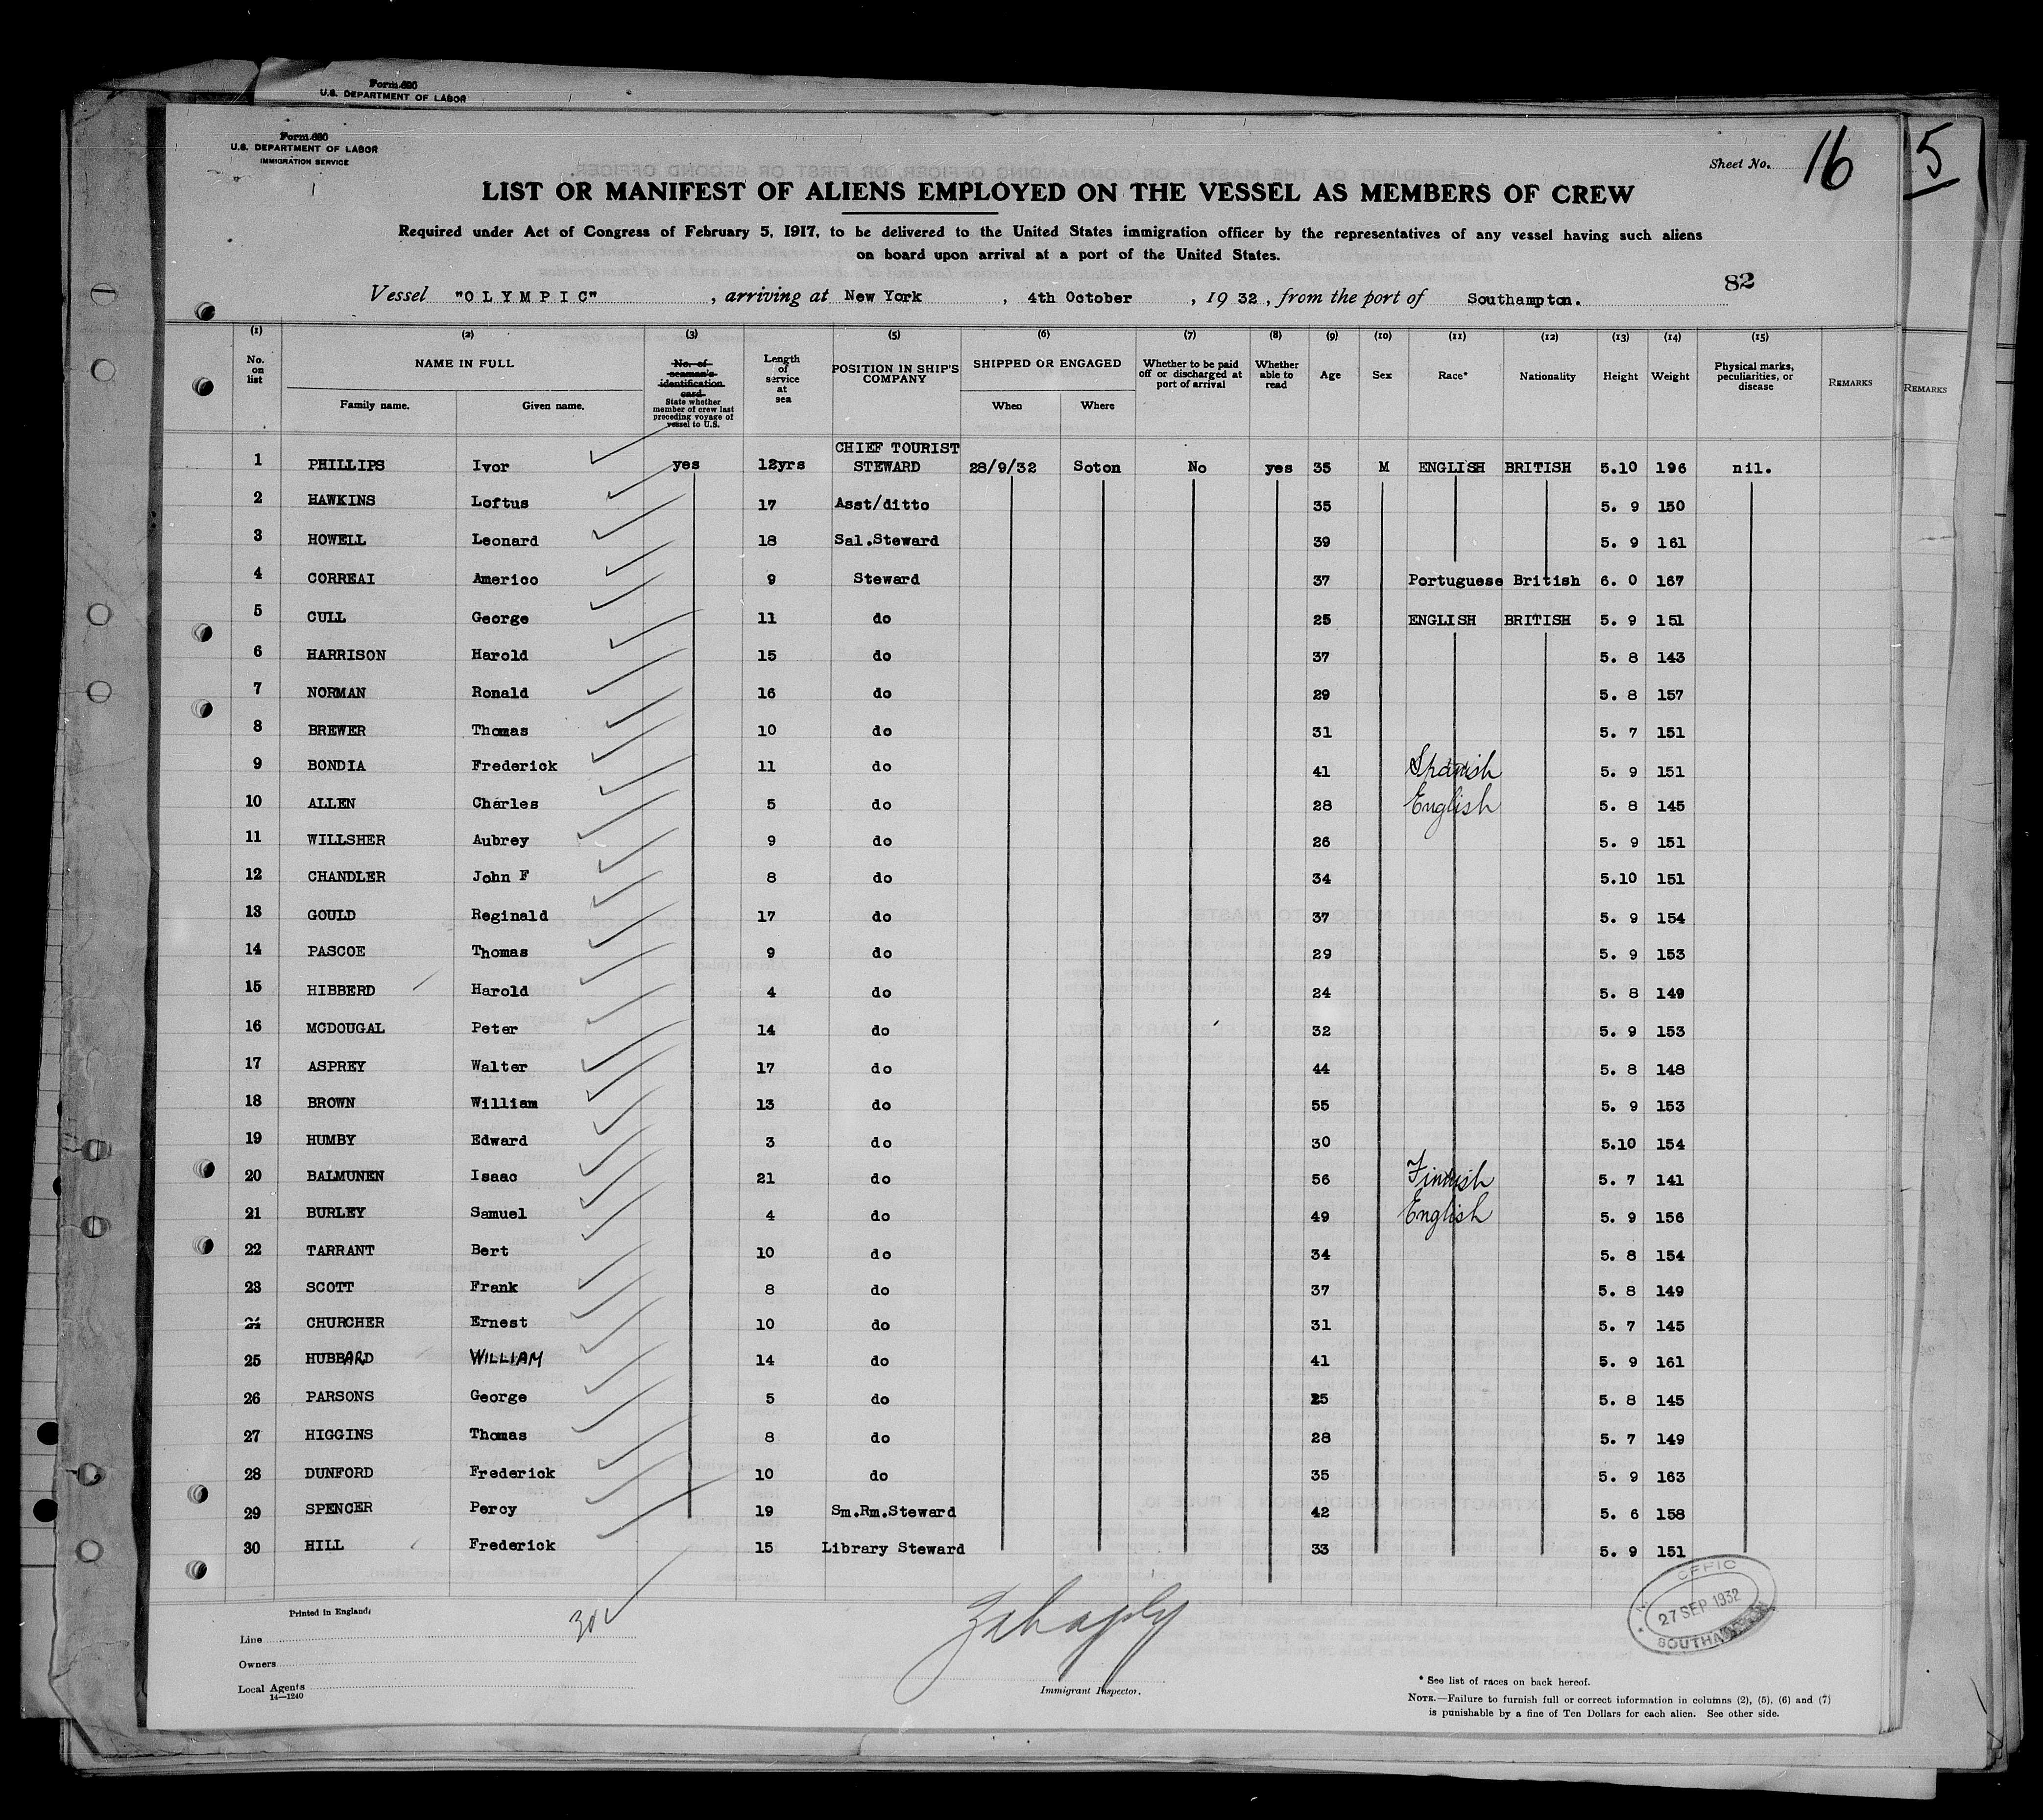 Form 680
U.S. DEPARTMENT OF LABOR
Form 680
U.S. DEPARTMENT OF LABOR
IMMIGRATION SERVICE
Sheet No. 16
5
LIST OR MANIFEST OF ALIENS EMPLOYED ON THE VESSEL AS MEMBERS OF CREW
Required under Act of Congress of February 5, 1917, to be delivered to the United States immigration officer by the representatives of any vessel having such aliens
on board upon arrival at a port of the United States.
82
Vessel "OLYMPIC", arriving at New York, 4th October, 1932, from the port of Southampton.
(1) (2) (3) (5) (6) (7) (8) (9) (10) (11) (12) (13) (14) (15)
No. on list NAME IN FULL Family name. Given name. No. of seaman's identification card State whether member of crew last preceding voyage of vessel to U.S. Length of service at sea POSITION IN SHIP'S COMPANY SHIPPED OR ENGAGED When Where Whether to be paid off or discharged at port of arrival Whether able to read Age Sex Race* Nationality Height Weight Physical marks, peculiarities, or disease REMARKS REMARKS
1 PHILLIPS Ivor yes 12yrs CHIEF TOURIST STEWARD 28/9/32 Soton No yes 35 M ENGLISH BRITISH 5.10 196 nil.
2 HAWKINS Loftus 17 Asst/ditto 35 5. 9 150
3 HOWELL Leonard 18 Sal.Steward 39 5. 9 161
4 CORREAI Americo 9 Steward 37 Portuguese British 6. 0 167
5 CULL George 11 do 25 ENGLISH BRITISH 5. 9 151
6 HARRISON Harold 15 do 37 5. 8 143
7 NORMAN Ronald 16 do 29 5. 8 157
8 BREWER Thomas 10 do 31 5. 7 151
9 BONDIA Frederick 11 do 41 Spanish 5. 9 151
10 ALLEN Charles 5 do 28 English 5. 8 145
11 WILLSHER Aubrey 9 do 26 5. 9 151
12 CHANDLER John F 8 do 34 5.10 151
13 GOULD Reginald 17 do 37 5. 9 154
14 PASCOE Thomas 9 do 29 5. 9 153
15 HIBBERD Harold 4 do 24 5. 8 149
16 MCDOUGAL Peter 14 do 32 5. 9 153
17 ASPREY Walter 17 do 44 5. 8 148
18 BROWN William 13 do 55 5. 9 153
19 HUMBY Edward 3 do 30 5.10 154
20 BALMUNEN Isaac 21 do 56 Finnish 5. 7 141
21 BURLEY Samuel 4 do 49 English 5. 9 156
22 TARRANT Bert 10 do 34 5. 8 154
23 SCOTT Frank 8 do 37 5. 8 149
24 CHURCHER Ernest 10 do 31 5. 7 145
25 HUBBARD WILLIAM 14 do 41 5. 9 161
26 PARSONS George 5 do 25 5. 8 145
27 HIGGINS Thomas 8 do 28 5. 7 149
28 DUNFORD Frederick 10 do 35 5. 9 163
29 SPENCER Percy 19 Sm.Rm.Steward 42 5. 6 158
30 HILL Frederick 15 Library Steward 33 5. 9 151
Printed in England.
30
27 SEP 1932
Line
Owners
Local Agents
14—1240
Immigrant Inspector.
* See list of races on back hereof.
NOTE.—Failure to furnish full or correct information in columns (2), (5), (6) and (7)
is punishable by a fine of Ten Dollars for each alien. See other side.